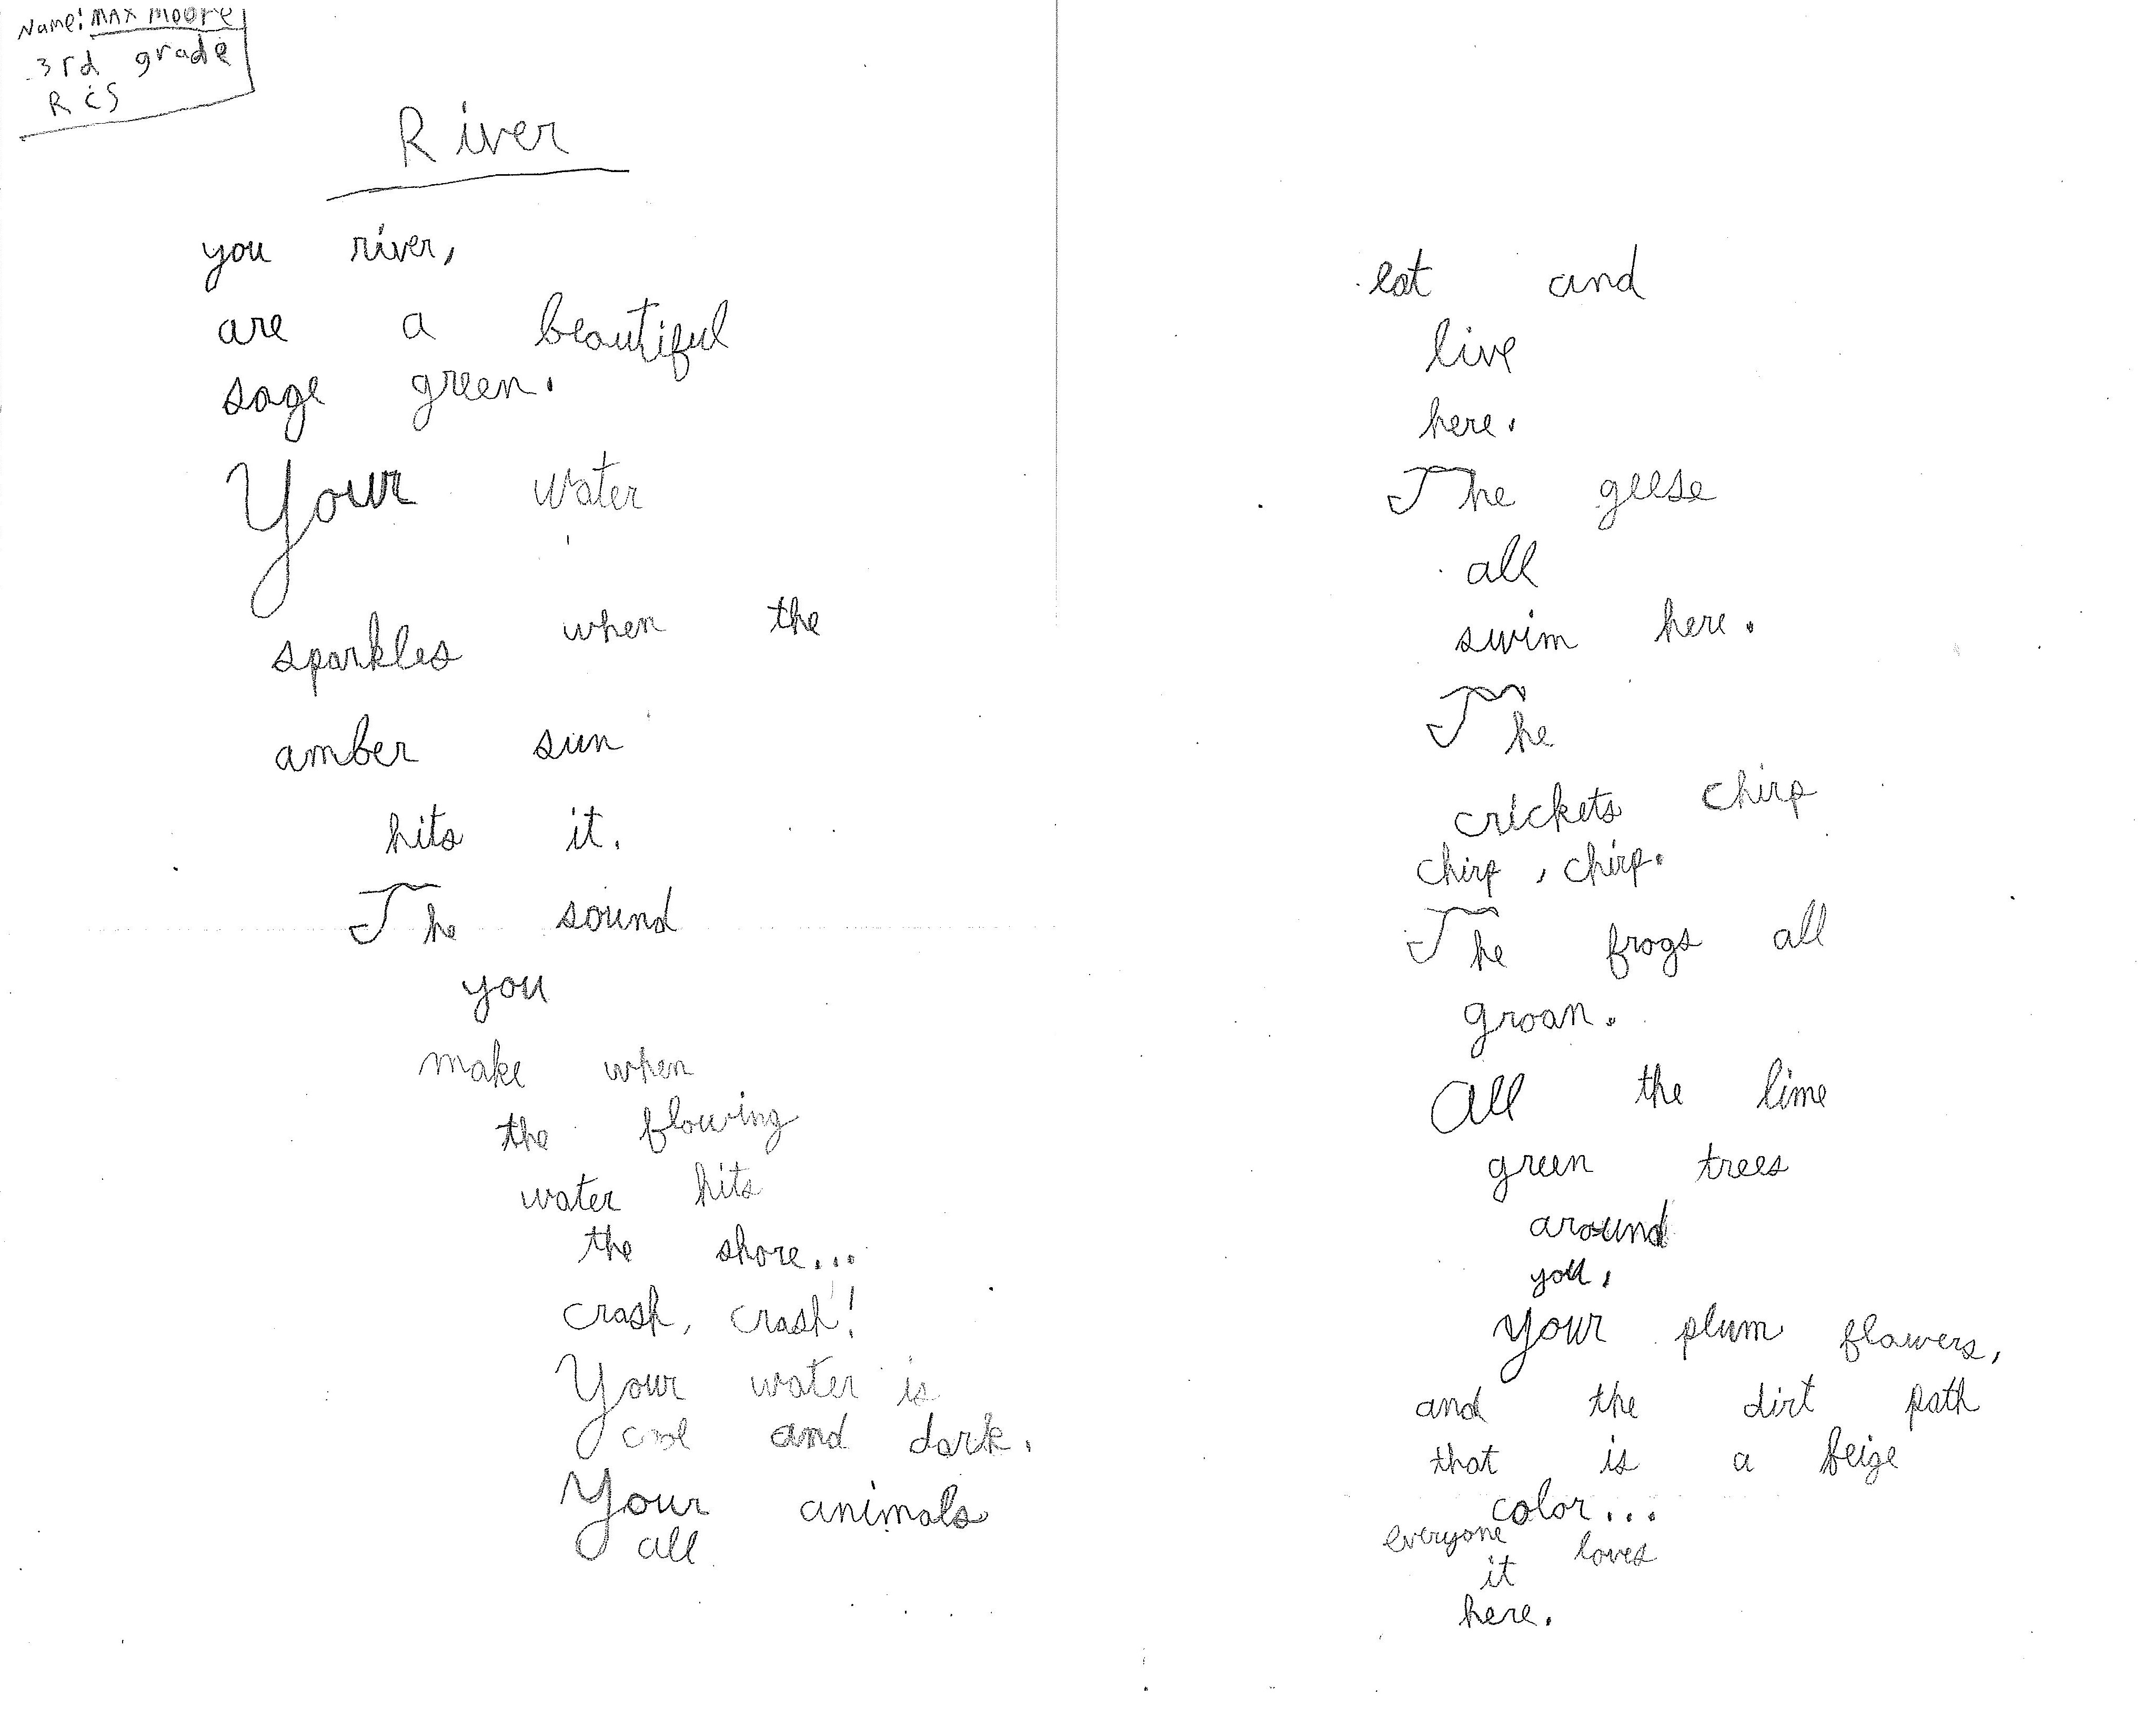 Name: MAX Moore
3rd grade
RCS
River
you river,
are a beautiful
sage green.
Your water
sparkles when the
amber sun
hits it.
The sound
you
make when
the flowing
water hits
the shore...
crash, crash!
Your water is
cool and dark.
Your animals
all
eat and
live
here.
The geese
all
swim here.
The
crickets chirp
chirp, chirp.
The frogs all
groan.
All the lime
green trees
around
you,
your plum flowers,
and the dirt path
that is a beige
color...
everyone loves
it
here.